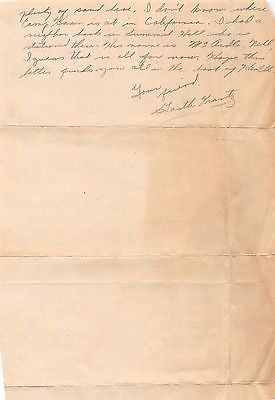 plenty of sand here. I don't know where
Camp Haan is at in California. I had a
neighbor back in Summit Hill who is
stationed there. His name is McArdle. Well
I guess that is all for now. Hope this
letter finds you all in the best of Health
Your friend,